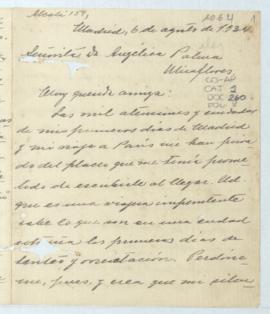 Alcalá 159,
Madrid, 6 de agosto de 1921
Señorita Da Angélica Palma
Miraflores
Muy querida amiga:
Las mil atenciones y cuidados
de mis primeros dias de Madrid
y mi viaje a Paris me han priva
do del placer que me tenía prome
tido de escribirle al llegar. Ud.
que es una viajera impenitente
sabe lo que son en una ciudad
extraña los primeros dias de
tanteo y orientación. Perdóne
me, pues, y crea que mi silen